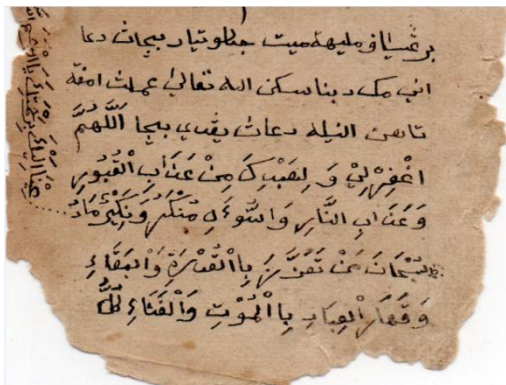 برغسياڤ مليهة ميت جكلو تياد بچاث دعا
اني مك دبناسكن الله تعالى عملث امڤة
تاهن انيله دعاث يڠدي بچا اَللَّهُمَّ
اغْفِرْ لِيْ مِنْ عَذَابِ الْقُبُورِ
وَعَذَابِ النَّارِ وَالسُّوءَلِ مُنْكَرُ وَنَكِيْرُ
سُبْحَانَ مَنْ تَعَزَّزَ بِاالْقُدْرَةِ وَالْبَقَاءِ
وَقَهَرَ الْعِبَادِ بِاالْمَوْتِ وَالْفَنَاءِ
بِرَحْمَتِكَ يَااَرْحَمَ